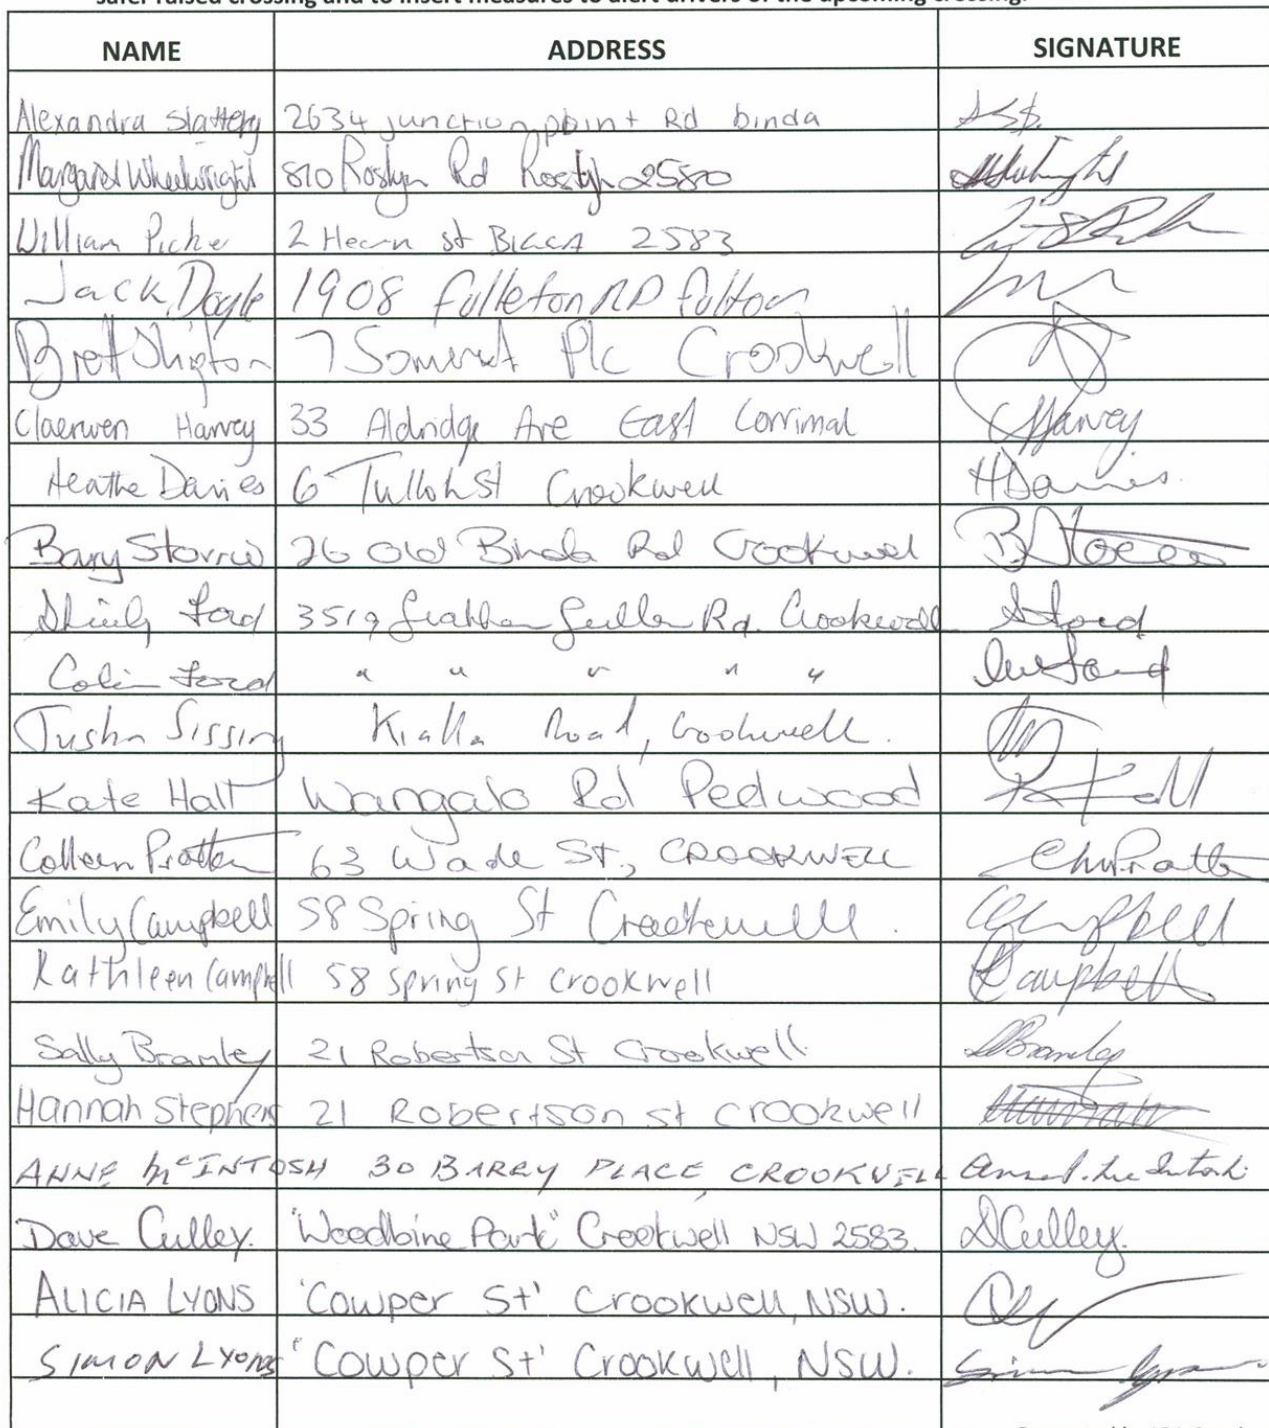 safer raised crossing and to insert measures to alert drivers of the upcoming crossing.
NAME ADDRESS SIGNATURE
Alexandra Slattery 2634 junction point Rd binda
Margaret Wheelwright 810 Roslyn Rd Roslyn 2580
William Picker 2 Hearn st BIGGA 2583
Jack Doyle 1908 Fulleton RD Fulton
Brett Shipton 7 Somerset Plc Crookwell
Claerwen Harvey 33 Aldridge Ave East Corrimal CHarvey
Heathe Davies 6 Tulloh st Crookwell HDavies
Barry Storrie 26 Old Binda Rd Crookwell
Shirely Ford 3519 Rd. Crookwell SFord
Colin Ford " " " " " Ford
Sissing Kialla Road, Crookwell.
Kate Hall Wangalo Rd Pedwood
Colleen Pratten 63 Wade St, CROOKWELL
Emily Campbell 58 Spring St Crookwell. Campbell
Kathleen Campbell 58 Spring St Crookwell Campbell
Sally Bramley 21 Robertson St Crookwell. SBramley
Hannah Stephens 21 Robertson st crookwell
ANNE McINTOSH 30 BARRY PLACE, CROOKWELL Anne P. McIntosh
Dave Culley. "Woodbine Park" Crookwell NSW 2583. DCulley.
ALICIA LYONS 'Cowper St' Crookwell, NSW.
SIMON LYONS 'Cowper St' Crookwell, NSW. Simon Lyons